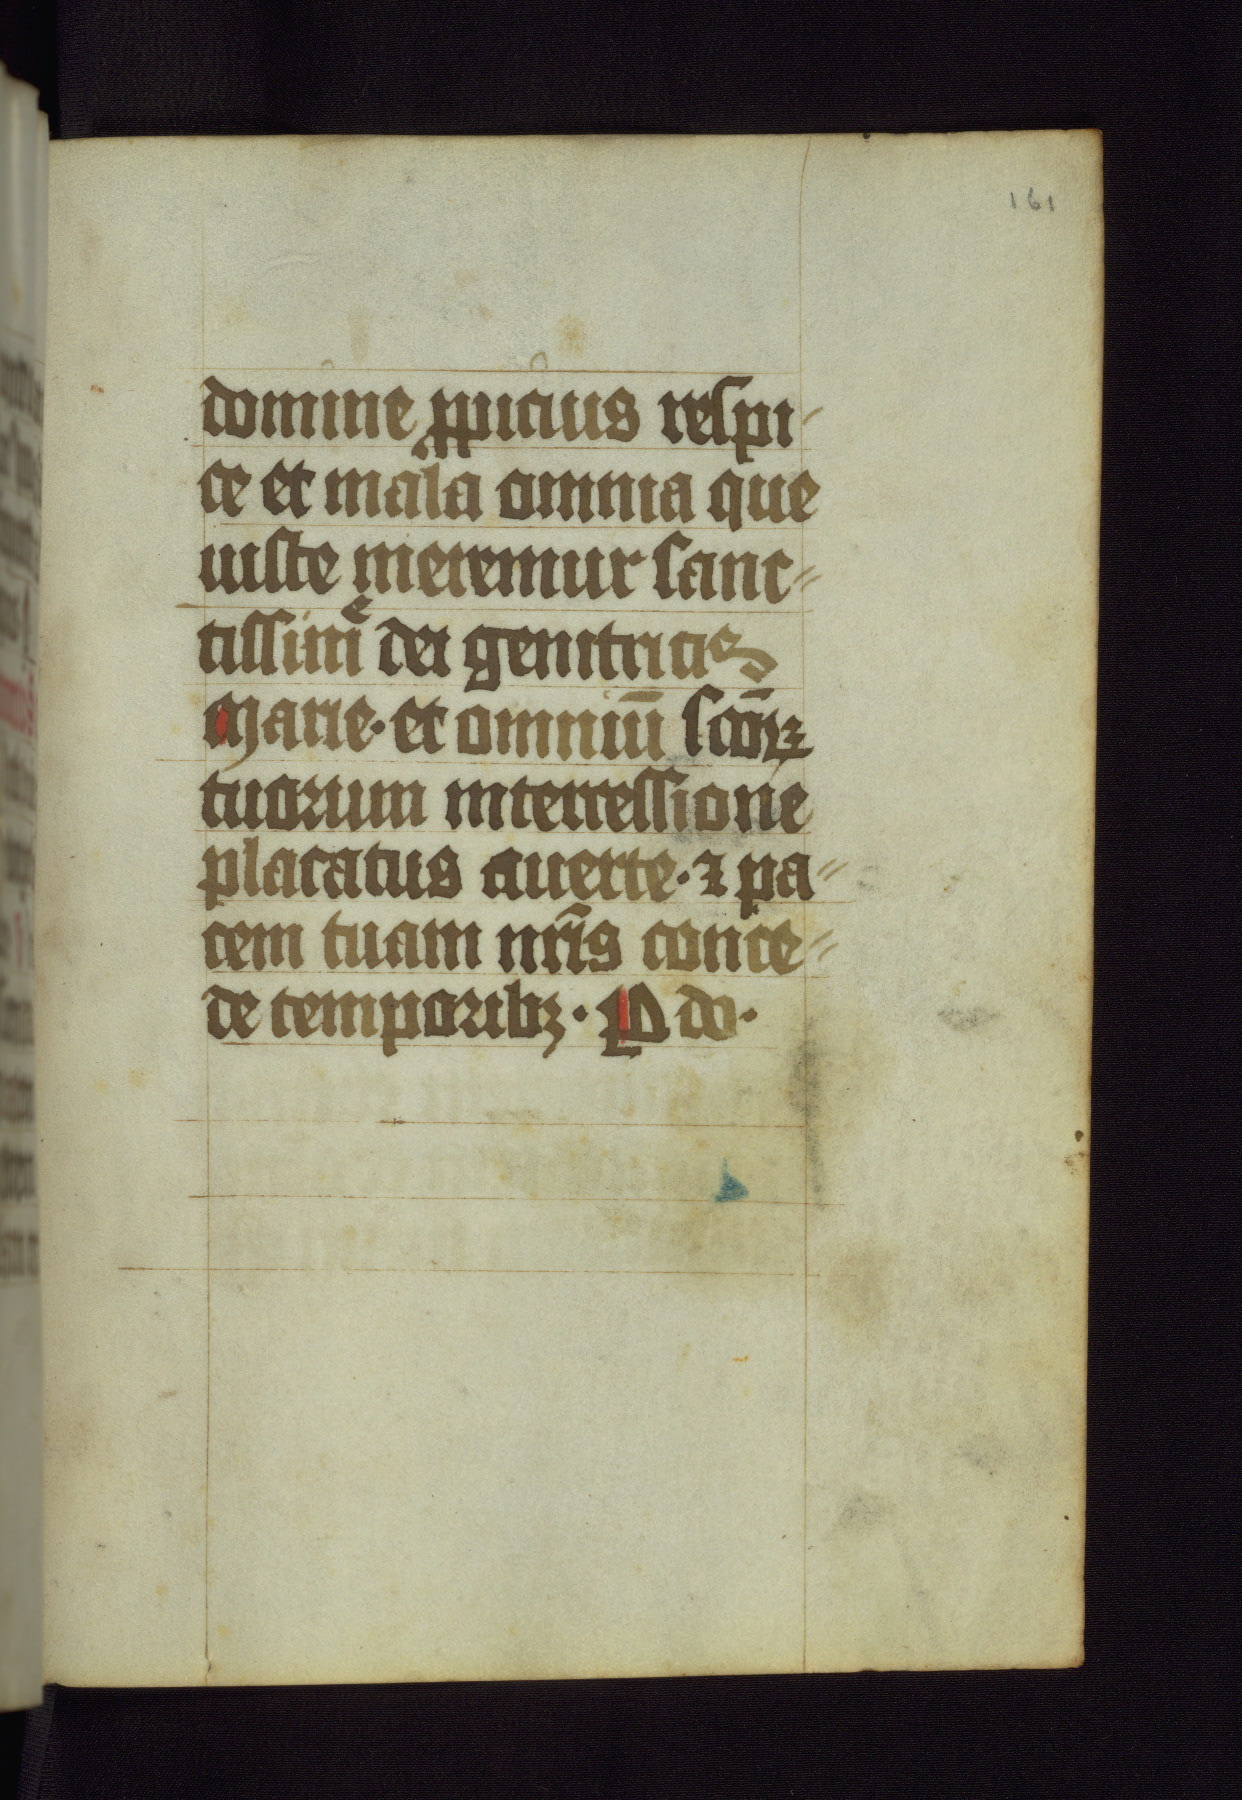 161
domine ꝓpicius respi-
ce et mala omnia que
iuste meremur sanc-
tissime dei genitricis
Marie· et omniū scōꝝ
tuorum intercessione
placatus auerte· ⁊ pa-
cem tuam nr̄is conce-
de temporibꝫ· P do·